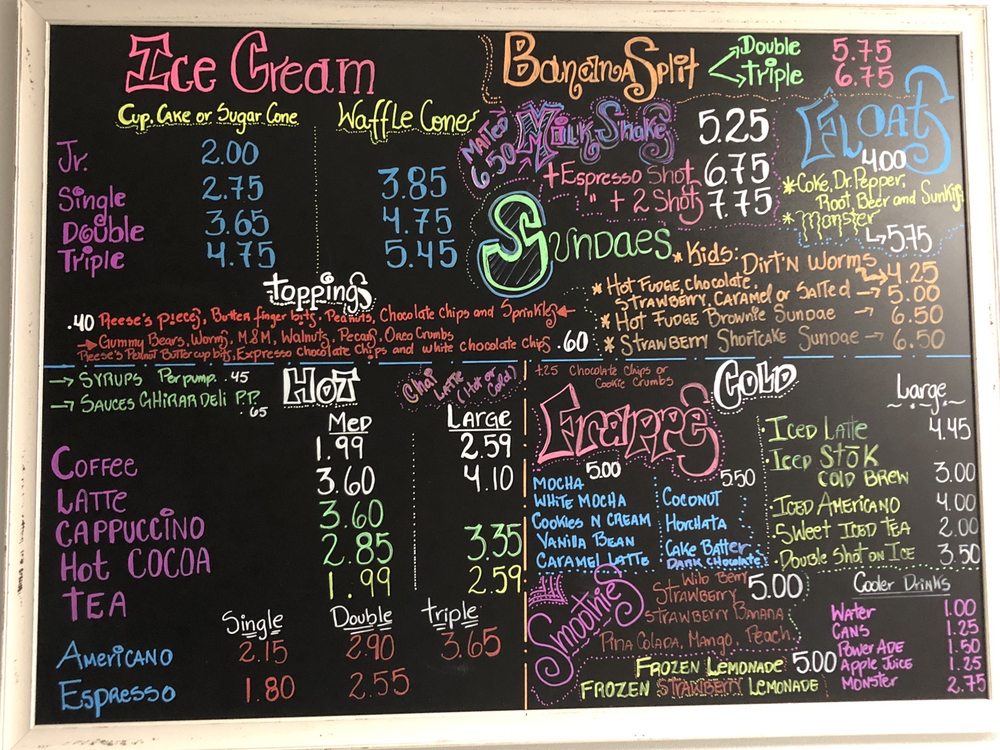 Ice Cream
Cup, Cake or Sugar Cone
Waffle Cones
Jr. 2.00
Single 2.75 3.85
Double 3.65 4.75
Triple 4.75 5.45
Toppings
.40 Reese's pieces, Butterfinger bits, Peanuts, Chocolate Chips and Sprinkles
Gummy Bears, Worms, M&M, Walnuts, Pecans, Oreo Crumbs
Reese's Peanut Butter cup bits, Expresso chocolate Chips and white chocolate chips .60
Banana Split
Double 5.75
Triple 6.75
Malted 6.50
Milk Shake 5.25
+Espresso Shot 6.75
" + 2 Shots 7.75
Floats
4.00
*Coke, Dr. Pepper,
Root Beer and Sunkist
*Monster
5.75
Sundaes
*Kids: Dirt 'N Worms 4.25
*Hot Fudge, Chocolate,
Strawberry, Caramel or Salted 5.00
*Hot Fudge Brownie Sundae 6.50
*Strawberry Shortcake Sundae 6.50
Syrups Per pump .45
Sauces Ghirardeli P.P. .65
Hot
Chai Latte (Hot or Cold)
Med Large
Coffee 1.99 2.59
Latte 3.60 4.10
Cappuccino 3.60
Hot Cocoa 2.85 3.35
Tea 1.99 2.59
Single Double triple
Americano 2.15 2.90 3.65
Espresso 1.80 2.55
+.25 Chocolate Chips or
Cookie Crumbs
Cold
Frappé
5.00
Mocha
White Mocha
Cookies N Cream
Vanilla Bean
Caramel Latte
5.50
Coconut
Horchata
Cake Batter
Dark Chocolate
Large
Iced Latte 4.45
Iced Stōk
Cold Brew 3.00
Iced Americano 4.00
Sweet Iced Tea 2.00
Double Shot on Ice 3.50
Smoothies
5.00
Wild Berry
Strawberry
Strawberry Banana
Pina Colada, Mango, Peach
Frozen Lemonade 5.00
Frozen Strawberry Lemonade
Cooler Drinks
Water 1.00
Cans 1.25
Power Ade 1.50
Apple Juice 1.25
Monster 2.75